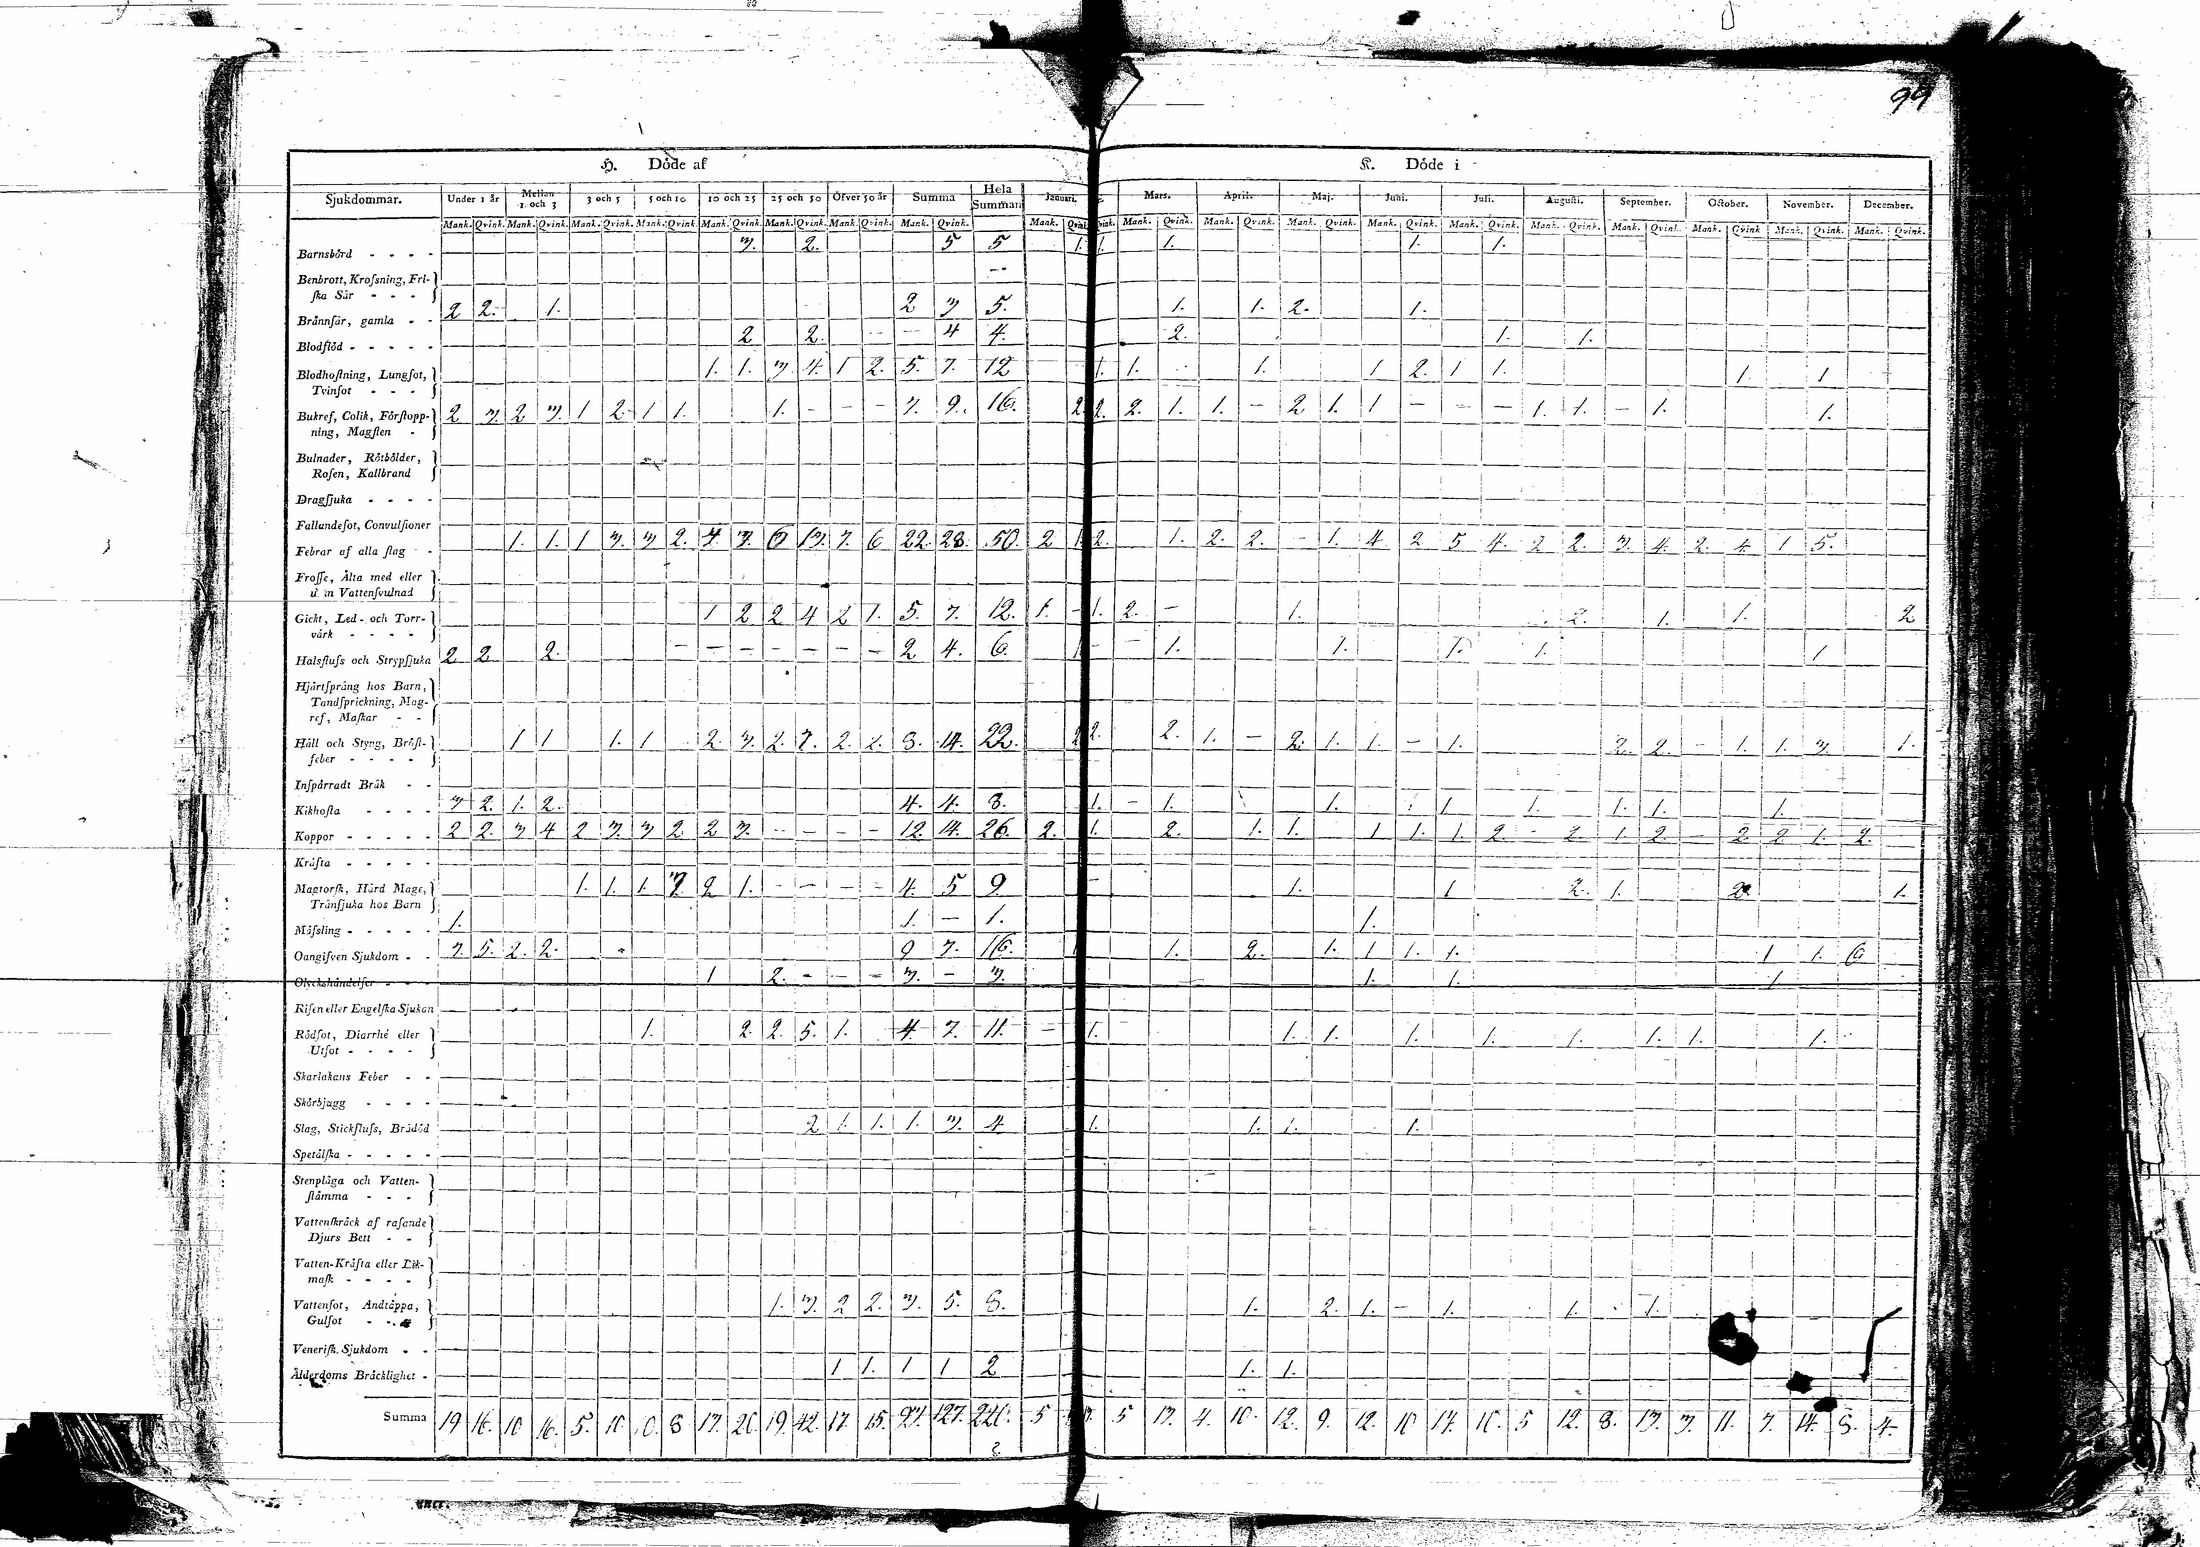 99
H. Döde af
K. Döde i
Sjukdommar. Under 1 år Mellan 1 och 3 3 och 5 5 och 10 10 och 25 25 och 50 Öfver 50 år Summa Hela Summan Januari. Mars. April. Maj. Juni. Juli. Augusti. September. October. November. December.
Mank. Qvink. Mank. Qvink. Mank. Qvink. Mank. Qvink. Mank. Qvink. Mank. Qvink. Mank. Qvink. Mank. Qvink. Mank. Qvink. Qvink. Mank. Qvink. Mank. Qvink. Mank. Qvink. Mank. Qvink. Mank. Qvink. Mank. Qvink. Mank. Qvink. Mank. Qvink. Mank. Qvink. Mank. Qvink.
Barnsbörd - - - - 3. 2. 5 5 1. 1. 1. 1. 1.
Benbrott, Krosning, Fri-
ska Sår - - -
Brännsår, gamla - - 2 2. 1. 2 3 5. 1. 1. 2. 1.
Blodflöd - - - - - 2 2. - - 4 4. 2. 1. 1.
Blodhostning, Lungsot, 1. 1. 3. 4. 1 2. 5. 7. 12 1. 1. 1. 1 2. 1 1. 1. 1
Tvinsot - - -
Bukref, Colik, Förstopp- 2 3. 2 3. 1 2. 1 1. 1. - - - 7. 9. 16. 2. 2. 2. 1. 1. - 2 1. 1 - - - 1. 1. - 1. 1.
ning, Magsten -
Bulnader, Rötbölder,
Rosen, Kallbrand
Dragsjuka - - - -
Fallandesot, Convulsioner
Febrar af alla slag - - 1. 1. 1 3. 3 2. 4. 3. 6 13. 7. 6 22. 28. 50. 2 1. 2. 1. 2. 2. - 1. 4 2 5 4. 2 2. 3. 4. 2. 4. 1 5.
Frosse, Älta med eller
utan Vattensvulnad
Gickt, Led- och Torr- 1 2 2 4 2 1. 5. 7. 12. 1. - 1. 2. - 1. 2. 1. 1. 2
värk - - - -
Halsfluss och Strypsjuka 2 2 2. - - - - - - - 2 4. 6. 1 - - 1. 1. 1. 1. 1
Hjärtspräng hos Barn,
Tandsprickning, Mag-
ref, Maskar - -
Håll och Styng, Bröst- 1 1 1. 1 2. 3. 2. 7. 2. 2. 8. 14. 22. 2 2. 2. 1. - 2. 1. 1. - 1. 2. 2. - 1. 1. 3. 1.
feber - - - -
Inspärradt Bråk - -
Kikhosta - - - - 3 2. 1. 2. 4. 4. 8. 1. - 1. 1. 1 1. 1. 1. 1.
Koppor - - - - - 2 2. 3 4 2 3. 3 2 2 3. - - - - 12 14. 26. 2. 1. 2. 1. 1. 1 1. 1. 2. - 2 1. 2. 2. 2 1. 2.
Kräfta - - - - -
Magtorsk, Hård Mage, 1. 1. 1. 2 1. - - - - 4. 5 9. 1. 1 2. 1. 1.
Tränsjuka hos Barn
Mässling - - - - - 1. 1. - 1. 1.
Oangifven Sjukdom - - 7. 5. 2. 2. 9 7. 16. 1 1. 2. 1. 1 1. 1. 1 1. 6.
Olyckshändelser - - - 1 2. - - - 3. - 3. 1. 1. 1
Risen eller Engelska Sjukan
Rödsot, Diarrhé eller 1. 2. 2. 5. 1. 4. 7. 11. - 1. 1. 1. 1. 1. 1. 1. 1. 1.
Utsot - - - -
Skarlakans Feber - -
Skörbjugg - - - -
Slag, Stickfluss, Brådöd 2 1. 1. 1. 3. 4 1. 1. 1. 1.
Spetälska - - - - -
Stenplåga och Vatten-
stämma - - -
Vattenskräck af rasande
Djurs Bett - -
Vatten-Kräfta eller Lik-
mask - - - -
Vattensot, Andtäppa, 1. 3. 2 2. 3. 5. 8. 1. 2. 1. - 1. 1. 1.
Gulsot - - -
Venerisk Sjukdom - -
Ålderdoms Bräcklighet - 1 1. 1 1 2 1. 1.
Summa 19 16. 10 16. 5. 10. 8 13. 20. 19. 42. 17. 15. 127. 220. 5 5 13. 4. 10. 12. 9. 12. 10 14. 10. 5 12. 8. 13. 3. 11. 7. 14. 8. 4.